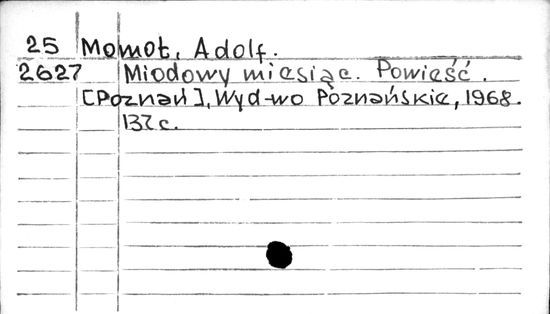 25 Momot, Adolf.
2627 Miodowy miesiąc. Powieść.
[Poznań], Wyd-wo Poznańskie, 1968.
137 c.